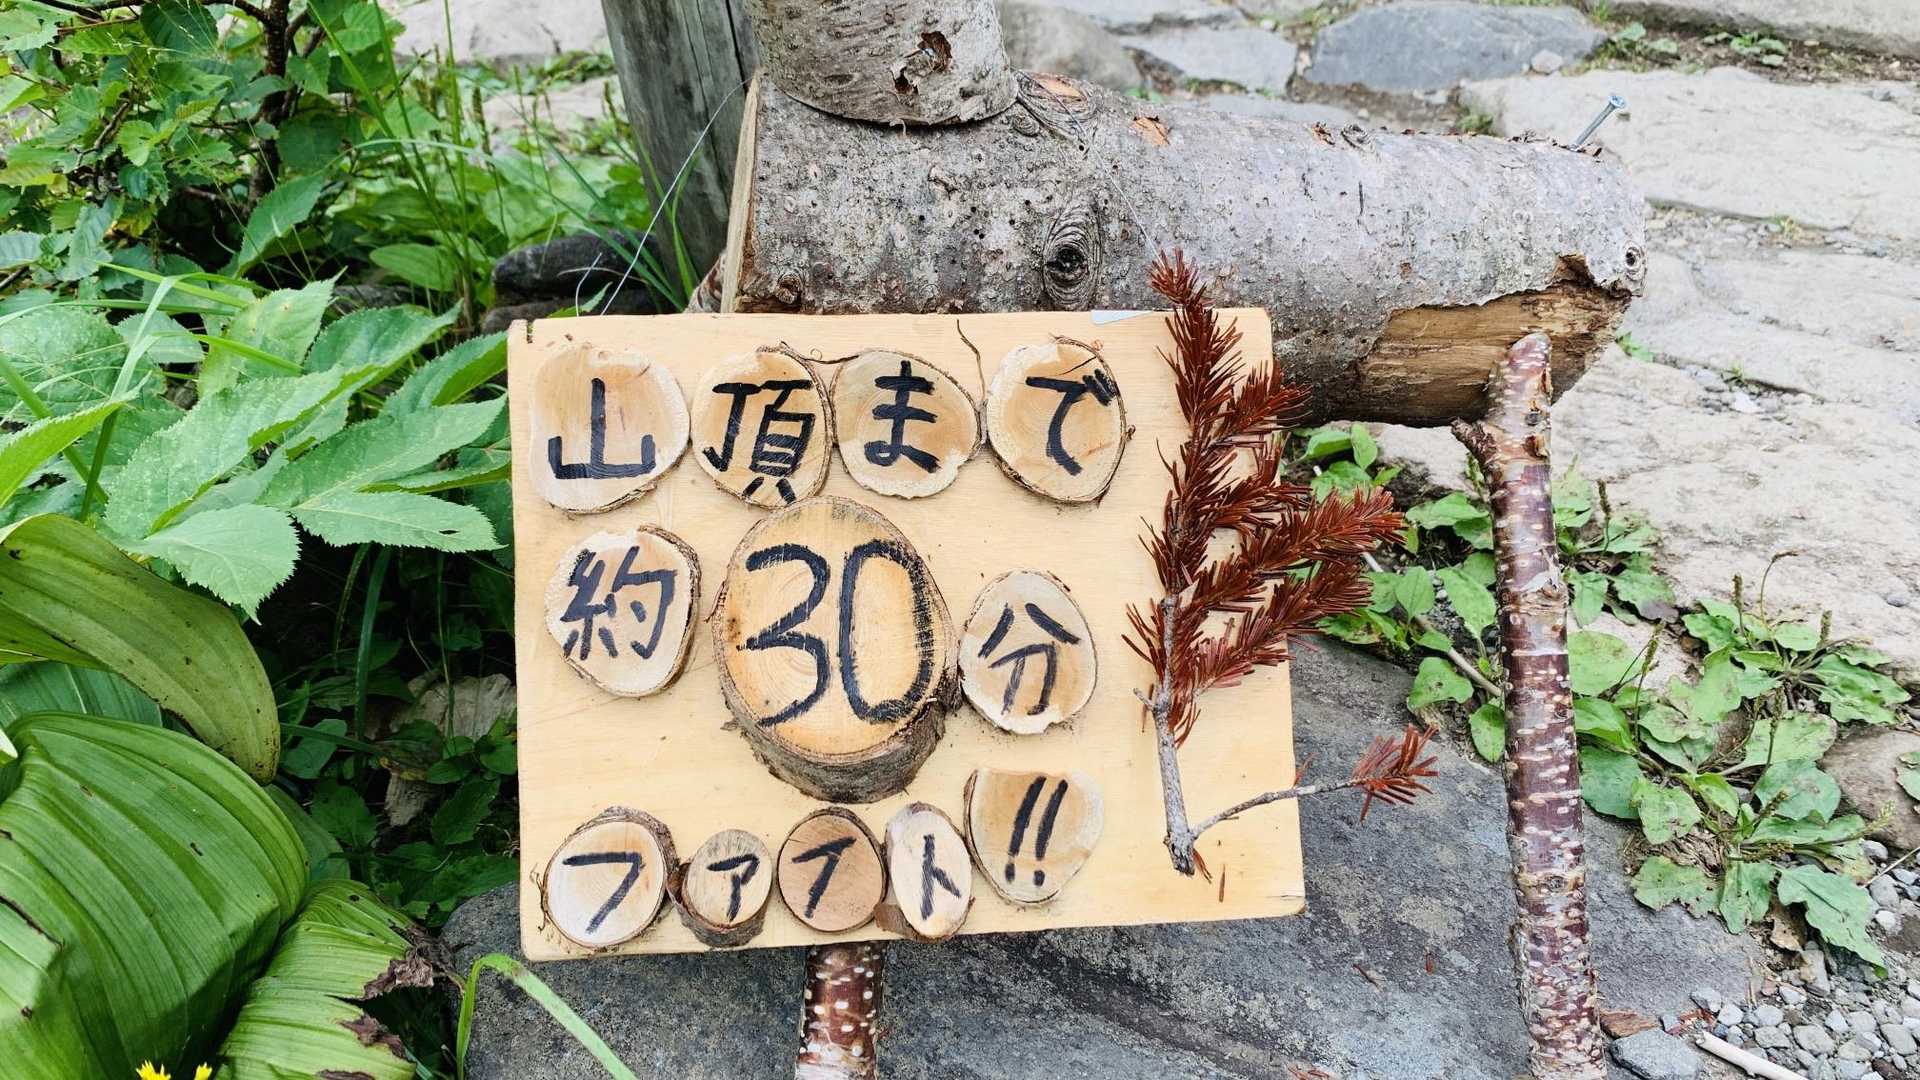 山頂まで
約30分
ファイト!!